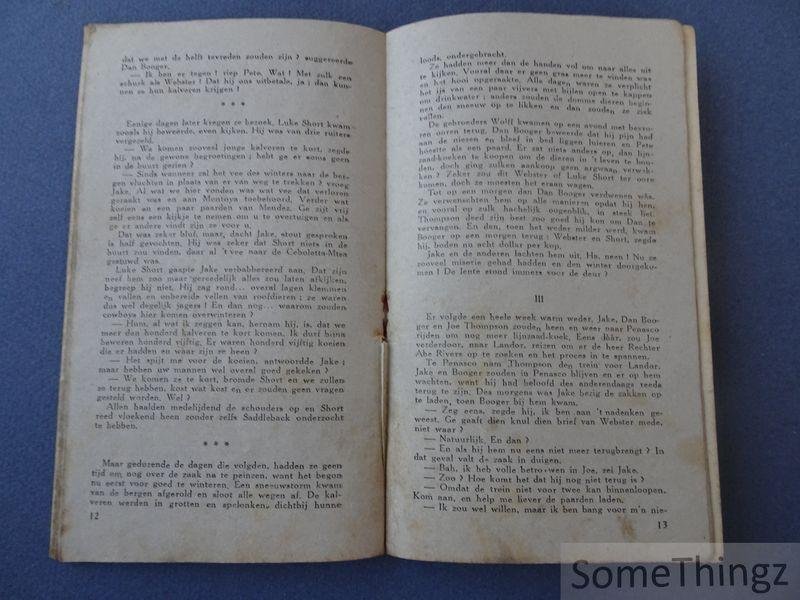 dat we met de helft tevreden zouden zijn ? suggereerde
Dan Booger.
— Ik ben er tegen ! riep Pete. Wat ! Met zulk een
schurk als Webster ! Dat hij ons uitbetale, ja ; dan kun-
nen ze hun kalveren krijgen !
* * *
Eenige dagen later kregen ze bezoek. Luke Short kwam
zooals hij beweerde, even kijken. Hij was van drie ruiters
vergezeld.
— We komen zooveel jonge kalveren te kort, zegde
hij, na de gewons begroetingen ; hebt ge er soms geen
in de buurt gezien ?
— Sinds wanneer zal het vee des winters naar de ber-
gen vluchten in plaats van er van weg te trekken ? vroeg
Jake. Al wat we hier vonden was wat vee dat verloren
geraakt was en aan Montoya toebehoord. Verder wat
koeien en een paar paarden van Mendez. Ge zijt vrij
zelf eens een kijkje te nemen om u te overtuigen en als
ge er andere vindt zijn ze voor u.
Dat was zeker bluf, maar, dacht Jake, stout gesproken
is half gevochten. Hij was zeker dat Short niets in de
buurt zou vinden, daar al 't vee naar de Ceboletta-Mtsa
gestuwd was.
Luke Short gaapte Jake verbabbereerd aan. Dat zijn
neef hen zoo maar gereedelijk alles zou laten afkijken,
begreep hij niet. Hij zag rond... overal lagen klemmen
en vallen en onbereide vellen van roofdieren ; ze waren
dus wel degelijk jagers ! En dan nog... waarom zouden
cowboys hier komen overwinteren ?
— Hum, al wat ik zeggen kan, hernam hij, is, dat we
meer dan honderd kalveren te kort komen. Ik durf bijna
beweren honderd vijftig. Er waren honderd vijftig koeien
die er hadden en waar zijn ze heen ?
— Het spijt me voor de koeien, antwoordde Jake ;
maar hebben uw mannen wel overal goed gekeken ?
— We komen ze te kort, bromde Short en we zullen
ze terug hebben, kost wat kost en er zouden geen vragen
gesteld worden. Wel ?
Allen haalden medelijdend de schouders op en Short
reed vloekend heen zonder zelfs Saddleback onderzocht
te hebben.
* * *
Maar gedurende de dagen die volgden, hadden ze geen
tijd om nog over de zaak na te peinzen, want het begon
nu eerst voor goed te winteren. Een sneeuwstorm kwam
van de bergen afgerold en sloot alle wegen af. De kal-
veren werden in grotten en spelonken, dichtbij hunne
12
loods, ondergebracht.
Ze hadden meer dan de handen vol om naar alles uit
te kijken. Vooral daar er geen gras meer te vinden was
en het hooi opgeraakte. Alle dagen, waren ze verplicht
het ijs van een paar vijvers met bijlen open te kappen
om drinkwater ; anders zouden de domme dieren begin-
nen den sneeuw op te likken en dan zouden ze ziek
vallen.
De gebroeders Wolff kwamen op een avond met bevro-
ren ooren terug, Dan Booger beweerde dat hij pijn had
aan de nieren en bleef in bed liggen luieren en Pete
hoestte als een paard. Er zat niets anders op, dan lijn-
zaad-koeken te koopen om de dieren in 't leven te hou-
den, doch ging zulken aankoop geen argwaan verwik-
ken ? Zeker zou dit Webster of Luke Short ter oore
komen, doch ze moesten het eraan wagen.
Tot op een morgen dan Dan Booger verdwenen was.
Ze verwenschten hem op alle manieren opdat hij hen,
en vooral op zulk hachelijk oogenblik, in steek liet.
Thompson deed zijn best zoo goed hij kon om Dan te
vervangen. En dan, toen het weder milder werd, kwam
Booger op een morgen terug ; Webster en Short, zegde
hij, boden nu acht dollar per kop.
Jake en de anderen lachten hem uit. Ha, neen ! Nu ze
zooveel miserie gehad hadden en den winter doorgeko-
men ! De lente stond immers voor de deur ?
III
Er volgde een heele week warm weder. Jake, Dan Boo-
ger en Joe Thompson zouden heen en weer naar Penasco
rijden om nog meer lijnzaad-koek. Eens dààr, zou Joe
verderdoor, naar Landor, reizen om er de heer Rechter
Abe Rivers op te zoeken en het proces in te spannen.
Te Penasco nam Thompson den trein voor Landor.
Jake en Booger zouden in Penasco blijven en er op hem
wachten, want hij had beloofd des anderendaags reeds
terug te zijn. Des morgens was Jake bezig de zakken op
te laden, toen Booger bij hem kwam.
— Zeg eens, zegde hij, ik ben aan 't nadenken ge-
weest. Ge gaaft dien knul dien brief van Webster mede,
niet waar ?
— Natuurlijk. En dan ?
— En als hij hem nu eens niet meer terugbrengt ? In
dat geval valt de zaak in duigen.
— Bah, ik heb volle betrouwen in Joe, zei Jake.
— Zoo ? Hoe komt het dat hij nog niet terug is ?
— Omdat de trein niet voor twee kan binnenloopen.
Kom aan, en help me liever de paarden laden.
— Ik zou wel willen, maar ik ben bang voor m'n nie-
13
SomeThingz